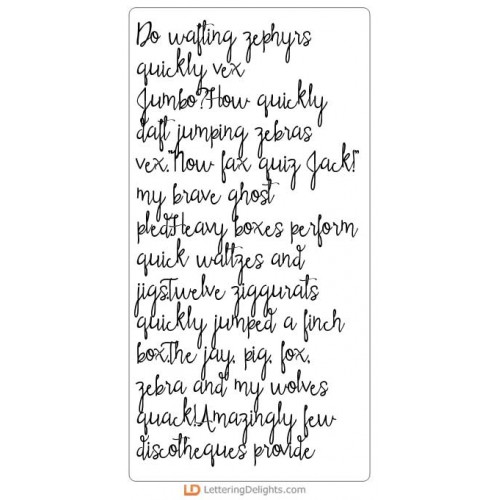 Do wafting zephyrs
quickly vex
Jumbo?How quickly
daft jumping zebras
vex."Now fax quiz Jack!"
my brave ghost
pled.Heavy boxes perform
quick waltzes and
jigs.Twelve ziggurats
quickly jumped a finch
box.The jay, pig, fox,
zebra and my wolves
quack!Amazingly few
discotheques provide
LD LetteringDelights.com